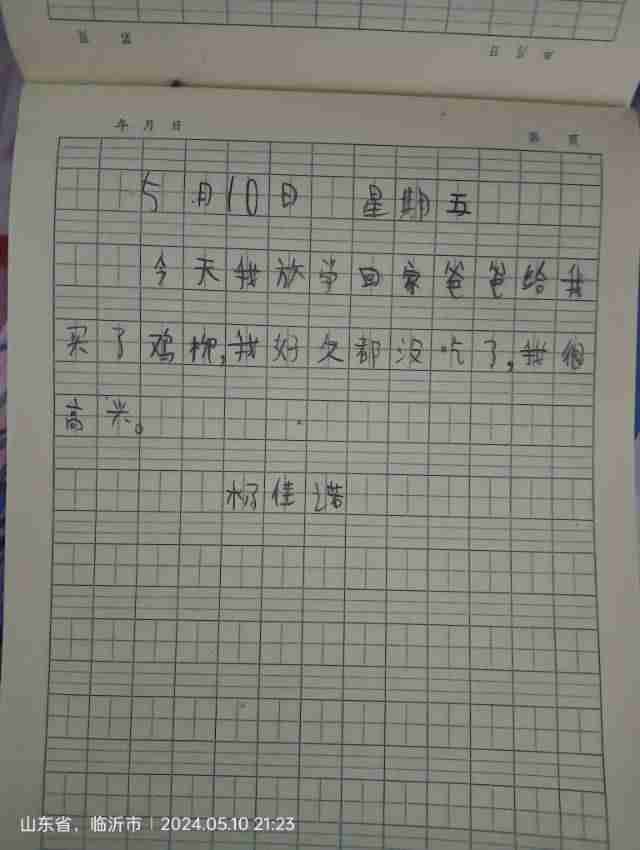 年 月 日
第 页
5月10日 星期五
今天我放学回家爸爸给我
买了鸡柳,我好久都没吃了,我很
高兴。
杨佳诺
山东省，临沂市 | 2024.05.10 21:23